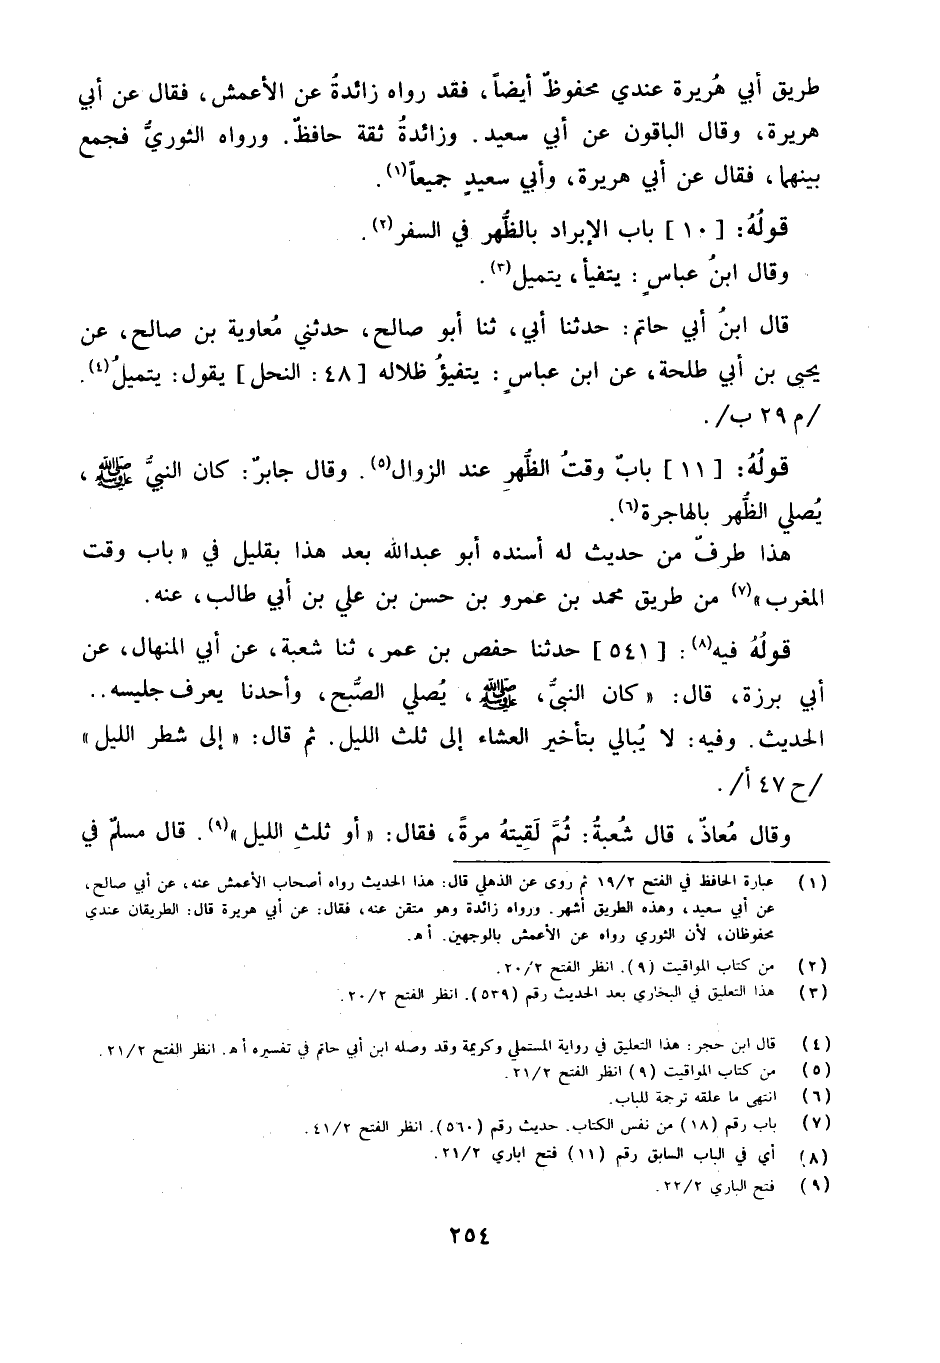 طريق أبي هُريرة عندي محفوظٌ أيضاً، فقد رواه زائدةُ عن الأعمش، فقال عن أبي
هريرة، وقال الباقون عن أبي سعيد. وزائدةُ ثقة حافظٌ. ورواه الثوريُّ فجمع
بينهما، فقال عن أبي هريرة، وأبي سعيدٍ جميعاً(١).
قولُهُ: [١٠] باب الإبراد بالظُّهر في السفر(٢).
وقال ابنُ عباسٍ: يتفيأ، يتميل(٣).
قال ابنُ أبي حاتم: حدثنا أبي، ثنا أبو صالح، حدثني مُعاوية بن صالح، عن
يحيى بن أبي طلحة، عن ابن عباسٍ: يتفيؤُ ظلاله [٤٨: النحل] يقول: يتميلُ(٤).
/م ٢٩ ب/.
قولُهُ: [١١] بابٌ وقتُ الظُّهرِ عند الزوال(٥). وقال جابرٌ: كان النبيُّ ﷺ،
يُصلي الظُّهر بالهاجرة(٦).
هذا طرفٌ من حديث له أسنده أبو عبدالله بعد هذا بقليل في «باب وقت
المغرب»(٧) من طريق محمد بن عمرو بن حسن بن علي بن أبي طالب، عنه.
قولُهُ فيه(٨): [٥٤١] حدثنا حفص بن عمر، ثنا شعبة، عن أبي المنهال، عن
أبي برزة، قال: «كان النبيُّ، ﷺ، يُصلي الصُّبح، وأحدنا يعرف جليسه..
الحديث. وفيه: لا يُبالي بتأخير العشاء إلى ثلث الليل. ثم قال: «إلى شطر الليل»
/ح ٤٧ أ/.
وقال مُعاذٌ، قال شُعبةُ: ثُمَّ لَقِيتهُ مرةً، فقال: «أو ثلثِ الليل»(٩). قال مسلمٌ في
(١) عبارة الحافظ في الفتح ١٩/٢ ثم روى عن الذهلي قال: هذا الحديث رواه أصحاب الأعمش عنه، عن أبي صالح،
عن أبي سعيد، وهذه الطريق أشهر. ورواه زائدة وهو متقن عنه، فقال: عن أبي هريرة قال: الطريقان عندي
محفوظان، لأن الثوري رواه عن الأعمش بالوجهين. أ هـ.
(٢) من كتاب المواقيت (٩). انظر الفتح ٢٠/٢.
(٣) هذا التعليق في البخاري بعد الحديث رقم (٥٣٩). انظر الفتح ٢٠/٢.
(٤) قال ابن حجر: هذا التعليق في رواية المستملي وكريمة وقد وصله ابن أبي حاتم في تفسيره أ هـ. انظر الفتح ٢١/٢.
(٥) من كتاب المواقيت (٩) انظر الفتح ٢١/٢.
(٦) انتهى ما علقه ترجمة للباب.
(٧) باب رقم (١٨) من نفس الكتاب. حديث رقم (٥٦٠). انظر الفتح ٤١/٢.
(٨) أي في الباب السابق رقم (١١) فتح اباري ٢١/٢.
(٩) فتح الباري ٢٢/٢.
٢٥٤